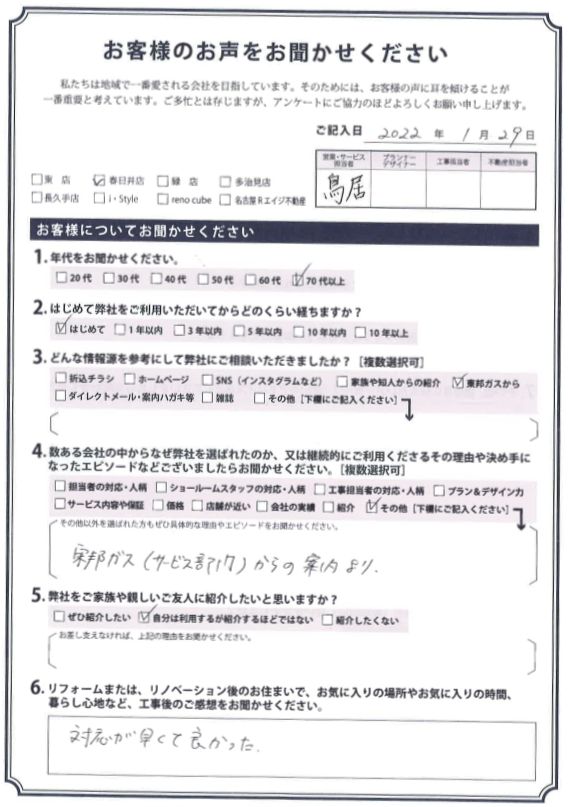 お客様のお声をお聞かせください
私たちは地域で一番愛される会社を目指しています。そのためには、お客様の声に耳を傾けることが
一番重要と考えています。ご多忙とは存じますが、アンケートにご協力のほどよろしくお願い申し上げます。
ご記入日 2022 年 1 月 29 日
営業・サービス担当者 プランナーデザイナー 工事担当者 不動産担当者
鳥居
□東 店 ☑春日井店 □緑 店 □多治見店
□長久手店 □i・Style □reno cube □名古屋Rエイジ不動産
お客様についてお聞かせください
1.年代をお聞かせください。
□20代 □30代 □40代 □50代 □60代 ☑70代以上
2.はじめて弊社をご利用いただいてからどのくらい経ちますか？
☑はじめて □1年以内 □3年以内 □5年以内 □10年以内 □10年以上
3.どんな情報源を参考にして弊社にご相談いただきましたか？［複数選択可］
□折込チラシ □ホームページ □SNS（インスタグラムなど） □家族や知人からの紹介 ☑東邦ガスから
□ダイレクトメール・案内ハガキ等 □雑誌 □その他［下欄にご記入ください］
4.数ある会社の中からなぜ弊社を選ばれたのか、又は継続的にご利用くださるその理由や決め手に
なったエピソードなどございましたらお聞かせください。［複数選択可］
□担当者の対応・人柄 □ショールームスタッフの対応・人柄 □工事担当者の対応・人柄 □プラン&デザイン力
□サービス内容や保証 □価格 □店舗が近い □会社の実績 □紹介 ☑その他［下欄にご記入ください］
その他以外を選ばれた方もぜひ具体的な理由やエピソードをお聞かせください。
東邦ガス（サービス部門）からの案内より.
5.弊社をご家族や親しいご友人に紹介したいと思いますか？
□ぜひ紹介したい ☑自分は利用するが紹介するほどではない □紹介したくない
お差し支えなければ、上記の理由をお聞かせください。
6.リフォームまたは、リノベーション後のお住まいで、お気に入りの場所やお気に入りの時間、
暮らし心地など、工事後のご感想をお聞かせください。
対応が早くて良かった.